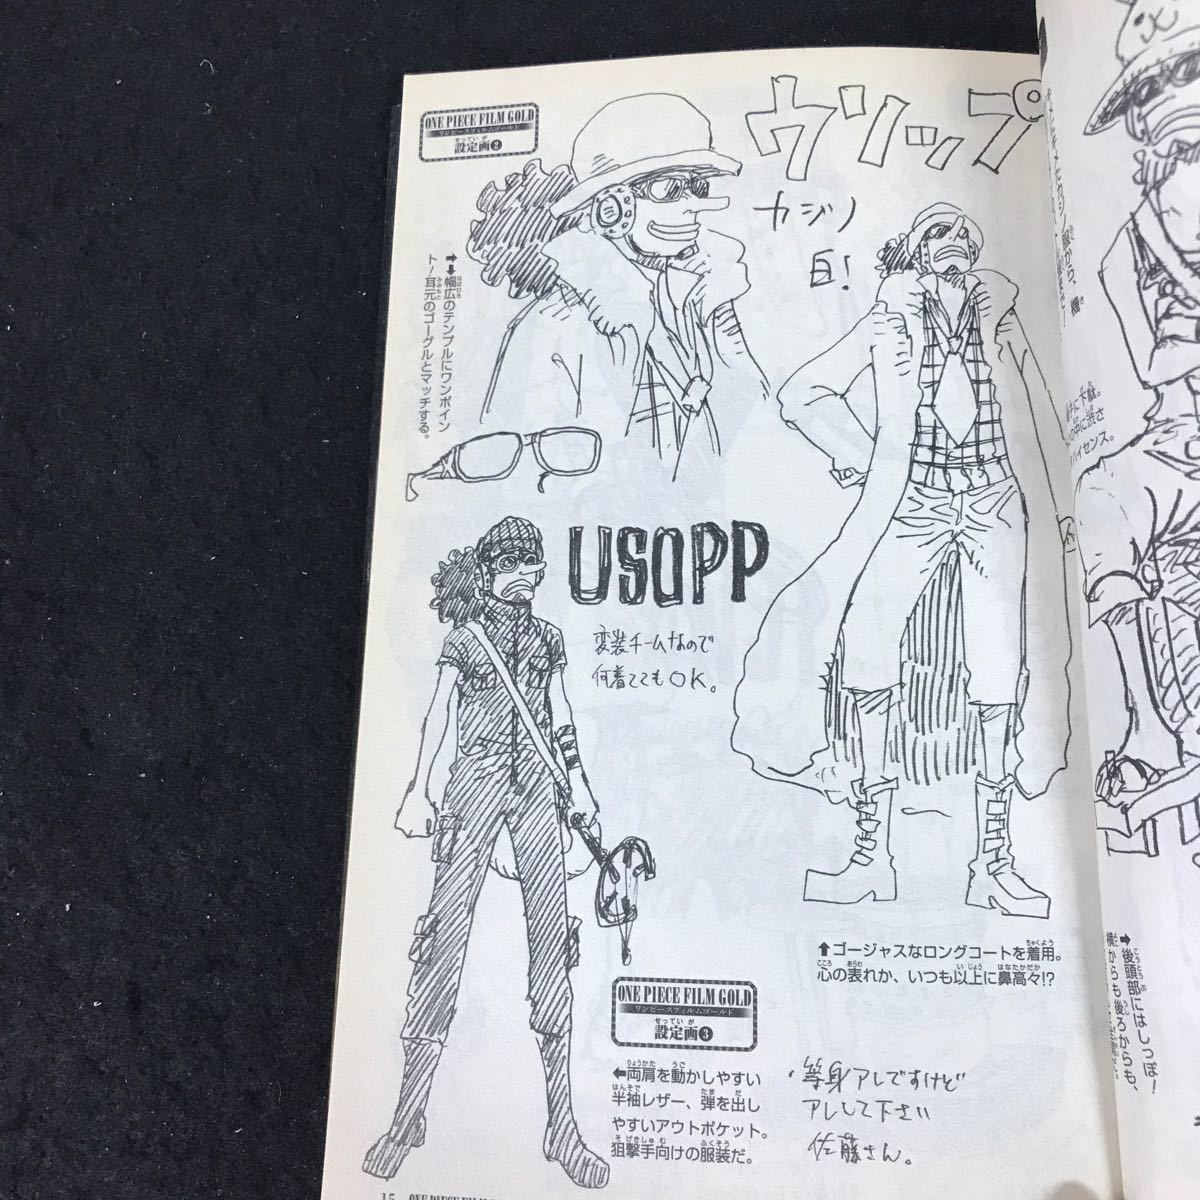 ONE PIECE FILM GOLD
ワンピースフィルムゴールド
せっていが
設定画❷
ウソップ
カジノ
目!
➡⬇幅広のテンプルにワンポイン
ト!耳元のゴーグルとマッチする。
USOPP
変装チームなので
何着ててもOK。
⬆ゴージャスなロングコートを着用。
心の表れか、いつも以上に鼻高々!?
ONE PIECE FILM GOLD
ワンピースフィルムゴールド
せっていが
設定画❸
⬅両肩を動かしやすい
半袖レザー、弾を出し
やすいアウトポケット。
狙撃手向けの服装だ。
等身アレですけど
アレして下さい
佐藤さん。
15 ONE PIECE FILM
に下駄。
の中に渋さ
ハイセンス。
➡後頭部にはしっぽ!
横からも後ろからも、